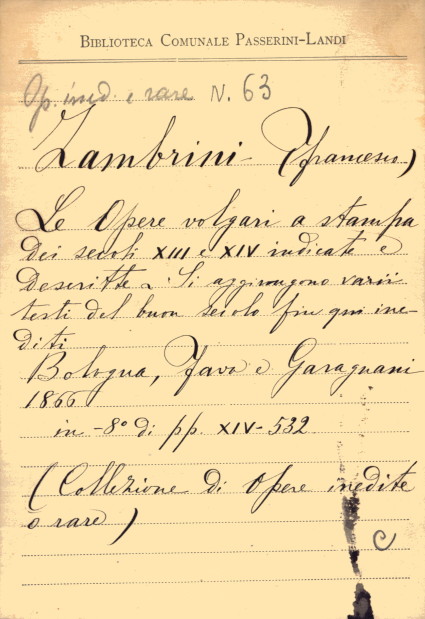 BIBLIOTECA COMUNALE PASSERINI-LANDI
Op. ined. e rare N. 63
Zambrini (Francesco)
Le Opere volgari a stampa
dei secoli XIII e XIV indicate e
descritte. Si aggiungono varii
testi del buon secolo fin qui ine-
diti
Bologna, Fava e Garagnani
1866
in-8° di pp. XIV-532
(Collezione di Opere inedite
o rare)
C